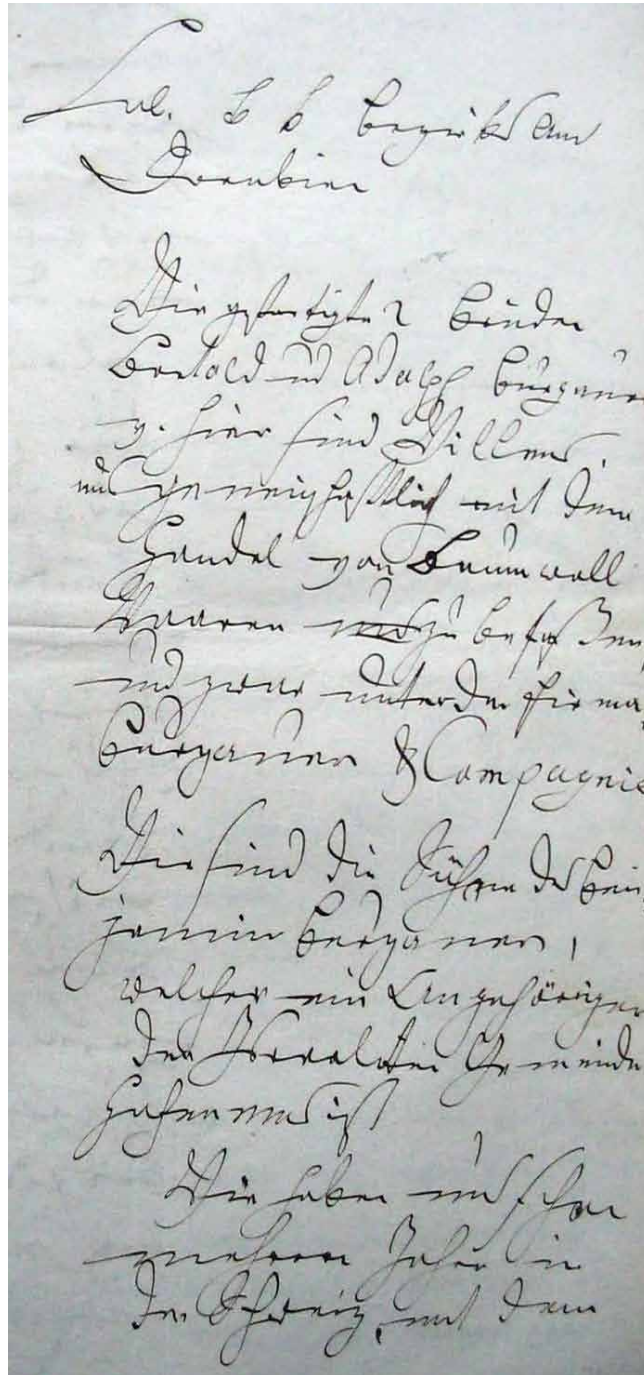 Löbl. k k Bezirks Amt
Dornbirn
Die gefertigten Brüder
Bertold und Adolph Burgauer
v. hier sind Willens,
uns gemeinschaftlich mit dem
Handel von Baumwoll
Waaren uns zu befaßen,
und zwar unter der Firma,
Burgauer & Compagnie
Wir sind die Söhne des Ben
jamin Burgauer,
welcher ein Angehöriger
der Israeliten Gemeinde
Hohenems ist
Wir haben uns schon
mehrere Jahre in
der Schweiz, mit dem